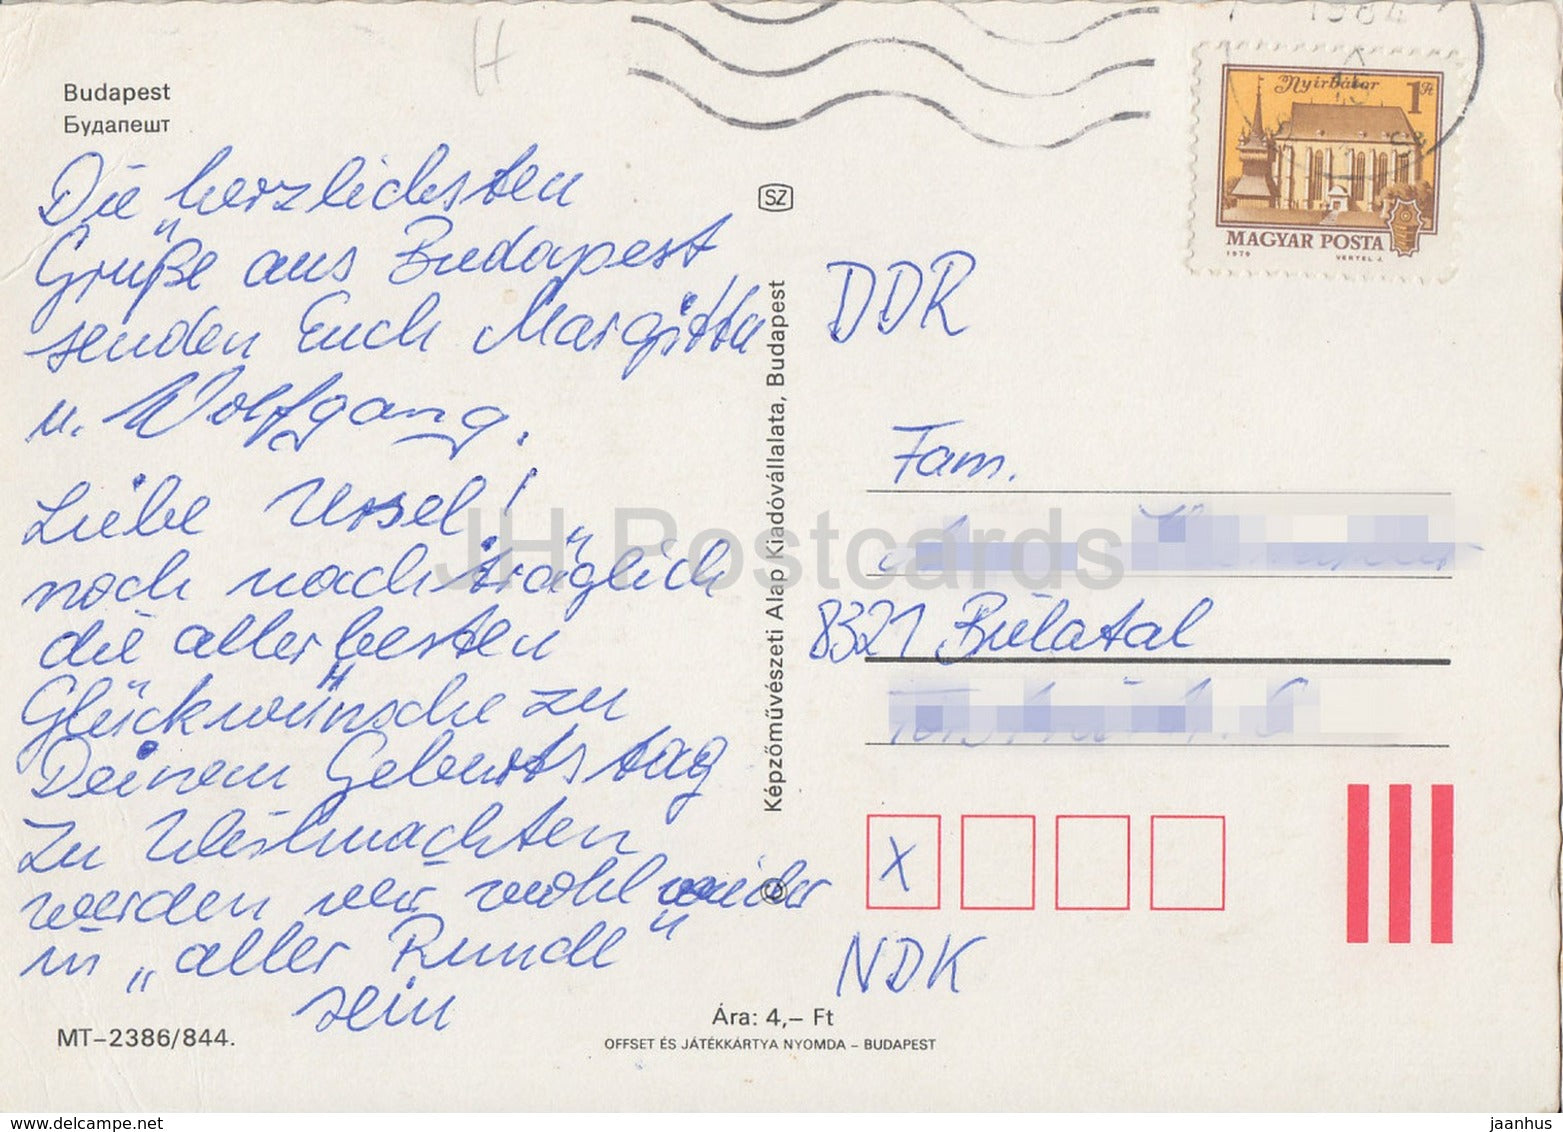 Budapest
Будапешт
Die herzlichsten
Grüße aus Budapest
senden Euch Margitta
u. Wolfgang.
Liebe Ursel!
noch nachträglich
die allerbesten
Glückwünsche zu
Deinem Geburtstag
Zu Weihnachten
werden wir wohl wieder
in „alter Runde“
sein
MT-2386/844.
SZ
Képzőművészeti Alap Kiadóvállalata, Budapest
©
Ára: 4,– Ft
OFFSET ÉS JÁTÉKKÁRTYA NYOMDA – BUDAPEST
1984
Nyírbátor
1 Ft
MAGYAR POSTA
1979 VERTEL J.
H
DDR
Fam.
8321 Bielatal
X
NDK
JH Postcards
www.delcampe.net
jaanhus